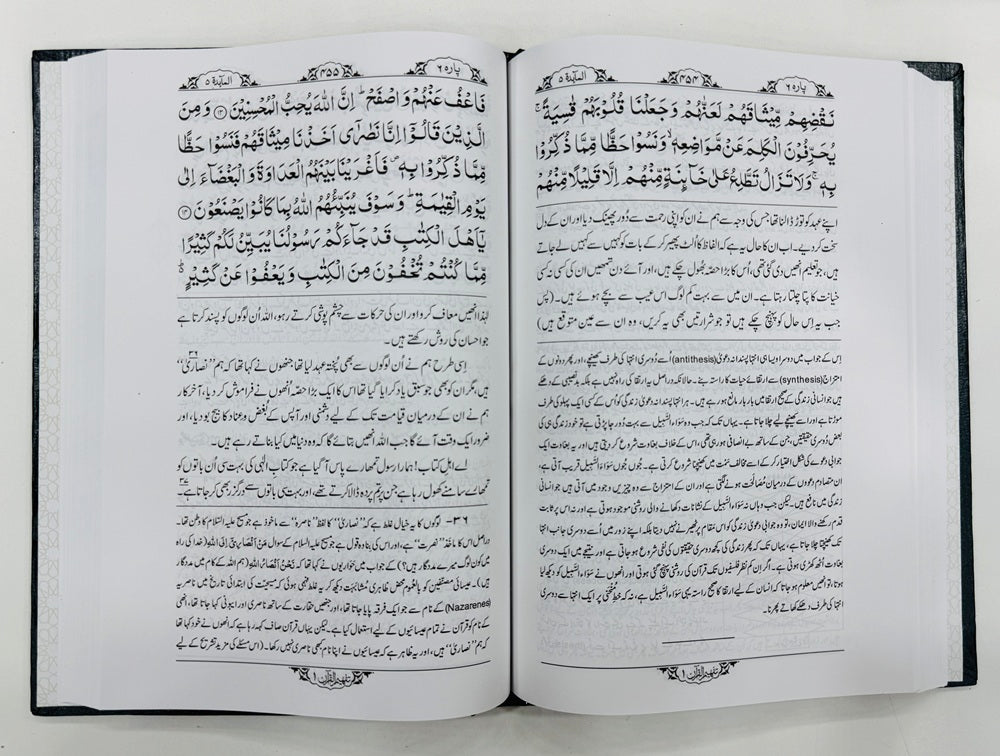 پارہ ۶
۴۵۴
المآئدۃ ۵
نَقْضِهِمْ مِّيْثَاقَهُمْ لَعَنّٰهُمْ وَجَعَلْنَا قُلُوْبَهُمْ قٰسِيَةً ۚ
يُحَرِّفُوْنَ الْكَلِمَ عَنْ مَّوَاضِعِهٖ ۙ وَنَسُوْا حَظًّا مِّمَّا ذُكِّرُوْا
بِهٖ ۚ وَلَا تَزَالُ تَطَّلِعُ عَلٰى خَآئِنَةٍ مِّنْهُمْ اِلَّا قَلِيْلًا مِّنْهُمْ
اپنے عہد کو توڑ ڈالنا تھا جس کی وجہ سے ہم نے ان کو اپنی رحمت سے دُور پھینک دیا اور ان کے دل
سخت کر دیے۔ اب ان کا حال یہ ہے کہ الفاظ کا اُلٹ پھیر کر کے بات کو کہیں سے کہیں لے جاتے
ہیں، جو تعلیم انھیں دی گئی تھی، اُس کا بڑا حصّہ بھُول چکے ہیں، اور آئے دن تمھیں ان کی کسی نہ کسی
خیانت کا پتا چلتا رہتا ہے۔ ان میں سے بہت کم لوگ اس عیب سے بچے ہوئے ہیں۔ (پس
جب یہ اِس حال کو پہنچ چکے ہیں تو جو شرارتیں بھی یہ کریں، وہ ان سے عین متوقع ہیں)
اِس کے جواب میں دوسرا ویسا ہی انتہا پسندانہ دعویٰ (antithesis) اُسے دُوسری انتہا کی طرف کھینچے، اور پھر دونوں کے
امتزاج (synthesis) سے ارتقائے حیات کا راستہ بنے۔ حالانکہ دراصل یہ ارتقا کی راہ نہیں ہے بلکہ بدنصیبی کے دھکے
ہیں جو انسانی زندگی کے صحیح ارتقا میں بار بار مانع ہو رہے ہیں۔ ہر انتہا پسندانہ دعویٰ زندگی کو اُس کے کسی ایک پہلو کی طرف
موڑتا ہے اور اُسے کھینچے لیے چلا جاتا ہے۔ یہاں تک کہ جب وہ سَوَاء السّبیل سے بہت دُور جا پڑتی ہے تو خود زندگی ہی کی
بعض دُوسری حقیقتیں، جن کے ساتھ بے انصافی ہو رہی تھی، اس کے خلاف بغاوت شروع کر دیتی ہیں اور یہ بغاوت ایک
جوابی دعوے کی شکل اختیار کر کے اسے مخالف سَمْت میں کھینچنا شروع کرتی ہے۔ جُوں جُوں سَوَاء السّبیل قریب آتی ہے،
ان متصادم دعووں کے درمیان مُصالحت ہونے لگتی ہے اور ان کے امتزاج سے وہ چیزیں وجود میں آتی ہیں جو انسانی
زندگی میں نافع ہیں۔ لیکن جب وہاں نہ سَوَاء السّبیل کے نشانات دکھانے والی روشنی موجود ہوتی ہے اور نہ اس پر ثابت
قدم رکھنے والا ایمان، تو وہ جوابی دعویٰ زندگی کو اس مقام پر ٹھیرنے نہیں دیتا بلکہ اپنے زور میں اُسے دوسری جانب انتہا
تک کھینچتا چلا جاتا ہے، یہاں تک کہ پھر زندگی کی کچھ دوسری حقیقتوں کی نفی شروع ہو جاتی ہے اور نتیجے میں ایک دوسری
بغاوت اُٹھ کھڑی ہوتی ہے۔ اگر ان کم نظر فلسفیوں تک قرآن کی روشنی پہنچ گئی ہوتی اور انھوں نے سَوَاء السّبیل کو دیکھ لیا
ہوتا، تو انھیں معلوم ہو جاتا کہ انسان کے لیے ارتقا کا صحیح راستہ یہی سَوَاء السّبیل ہے، نہ کہ خطِ مُنحنی پر ایک انتہا سے دوسری
انتہا کی طرف دھکے کھاتے پھرنا۔
تفہیم القرآن ۱
پارہ ۶
۴۵۵
المآئدۃ ۵
فَاعْفُ عَنْهُمْ وَاصْفَحْ ؕ اِنَّ اللّٰهَ يُحِبُّ الْمُحْسِنِيْنَ ﴿۱۳﴾ وَمِنَ
الَّذِيْنَ قَالُوْۤا اِنَّا نَصٰرٰۤى اَخَذْنَا مِيْثَاقَهُمْ فَنَسُوْا حَظًّا
مِّمَّا ذُكِّرُوْا بِهٖ ۪ فَاَغْرَيْنَا بَيْنَهُمُ الْعَدَاوَةَ وَالْبَغْضَآءَ اِلٰى
يَوْمِ الْقِيٰمَةِ ؕ وَسَوْفَ يُنَبِّئُهُمُ اللّٰهُ بِمَا كَانُوْا يَصْنَعُوْنَ ﴿۱۴﴾
يٰۤاَهْلَ الْكِتٰبِ قَدْ جَآءَكُمْ رَسُوْلُنَا يُبَيِّنُ لَكُمْ كَثِيْرًا
مِّمَّا كُنْتُمْ تُخْفُوْنَ مِنَ الْكِتٰبِ وَيَعْفُوْا عَنْ كَثِيْرٍ ؕ
لہٰذا انھیں معاف کرو اور ان کی حرکات سے چشم پوشی کرتے رہو، اللہ اُن لوگوں کو پسند کرتا ہے
جو احسان کی روش رکھتے ہیں۔
اِسی طرح ہم نے اُن لوگوں سے بھی پُختہ عہد لیا تھا جنھوں نے کہا تھا کہ ہم ”نصاریٰ“۳۶
ہیں، مگر ان کو بھی جو سبق یاد کرایا گیا تھا اس کا ایک بڑا حصّہ اُنھوں نے فراموش کر دیا، آخر کار
ہم نے ان کے درمیان قیامت تک کے لیے دشمنی اور آپس کے بُغض و عناد کا بیج بو دیا، اور
ضرور ایک وقت آئے گا جب اللہ انھیں بتائے گا کہ وہ دنیا میں کیا بناتے رہے ہیں۔
اے اہلِ کتاب! ہمارا رسول تمھارے پاس آ گیا ہے جو کتابِ الٰہی کی بہت سی اُن باتوں کو
تمھارے سامنے کھول رہا ہے جن پر تم پردہ ڈالا کرتے تھے، اور بہت سی باتوں سے درگزر بھی کر جاتا ہے۔۳۷
۳۶- لوگوں کا یہ خیال غلط ہے کہ ”نصاریٰ“ کا لفظ ”ناصرہ“ سے ماخوذ ہے جو مسیح علیہ السّلام کا وطن تھا۔
دراصل اس کا ماخذ ”نصرت“ ہے، اور اس کی بنا وہ قول ہے جو مسیح علیہ السّلام کے سوال مَنْ اَنْصَارِيْٓ اِلَى اللّٰهِ (خدا کی راہ
میں کون لوگ میرے مددگار ہیں؟) کے جواب میں حواریوں نے کہا تھا کہ نَحْنُ اَنْصَارُ اللّٰهِ (ہم اللہ کے کام میں مددگار
ہیں)۔ عیسائی مصنّفین کو بالعموم محض ظاہری مشابہت دیکھ کر یہ غلط فہمی ہوئی کہ مسیحیّت کی ابتدائی تاریخ میں ناصریہ
(Nazarenes) کے نام سے جو ایک فرقہ پایا جاتا تھا، اور جنھیں حقارت کے ساتھ ناصری اور ایبونی کہا جاتا تھا، انھی
کے نام کو قرآن نے تمام عیسائیوں کے لیے استعمال کیا ہے۔ لیکن یہاں قرآن صاف کہہ رہا ہے کہ انھوں نے خود کہا تھا
کہ ہم ”نصاریٰ“ ہیں، اور یہ ظاہر ہے کہ عیسائیوں نے اپنا نام بھی ناصری نہیں رکھا۔ (اس مسئلے کی مزید تشریح کے لیے
تفہیم القرآن ۱